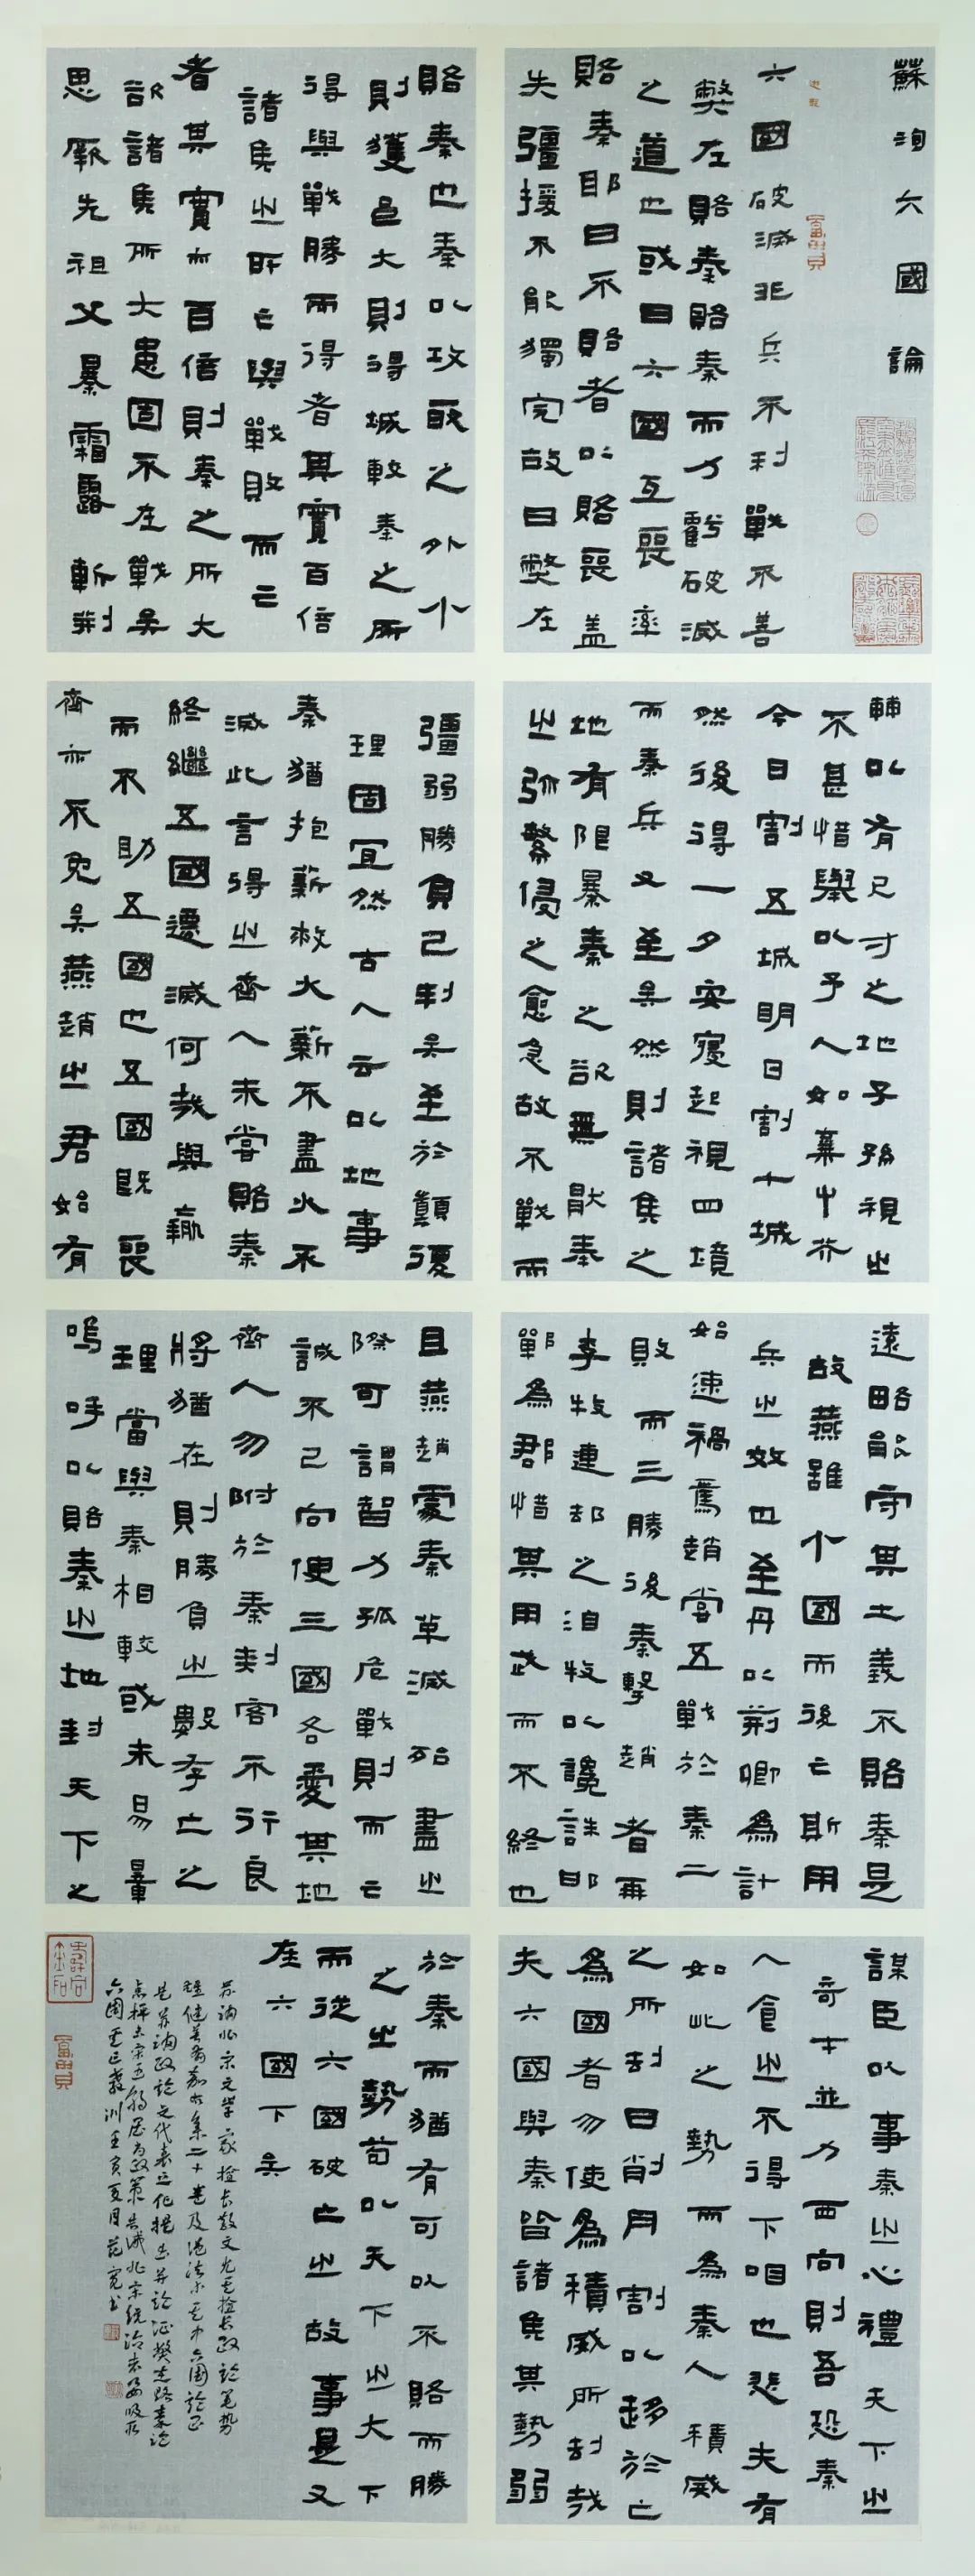 蘇洵六國論
六國破滅非兵不利戰不善
弊在賂秦賂秦而力虧破滅
之道也或曰六國互喪率
賂秦耶曰不賂者以賂喪蓋
失彊援不能獨完故曰弊在
賂秦也秦以攻取之外小
則獲邑大則得城較秦之所
得與戰勝而得者其實百倍
諸侯之所亡與戰敗而亡
者其實亦百倍則秦之所大
欲諸侯所大患固不在戰矣
思厥先祖父暴霜露斬荊
棘以有尺寸之地子孫視之
不甚惜舉以予人如棄艸芥
今日割五城明日割十城
然後得一夕安寢起視四境
而秦兵又至矣然則諸侯之
地有限暴秦之欲無厭奉
之弥繁侵之愈急故不戰而
彊弱勝負已判矣至於顛覆
理固宜然古人云以地事
秦猶抱薪救火薪不盡火不
滅此言得之齊人未嘗賂秦
終繼五國遷滅何哉與嬴
而不助五國也五國既喪
齊亦不免矣燕趙之君始有
遠略能守其土義不賂秦是
故燕雖小國而後亡斯用
兵之效也至丹以荊卿為計
始速禍焉趙嘗五戰於秦二
敗而三勝後秦擊趙者再
李牧連却之洎牧以讒誅邯
鄲為郡惜其用武而不終也
且燕趙處秦革滅殆盡之
際可謂智力孤危戰則而亡
誠不已向使三國各愛其地
齊人勿附於秦刺客不行良
將猶在則勝負之數存亡之
理當與秦相較或未易量
嗚呼以賂秦之地封天下之
謀臣以事秦之心禮天下之
奇才並力西向則吾恐秦
人食之不得下咽也悲夫有
如此之勢而為秦人積威
之所刧日削月割以趨於亡
為國者勿使為積威所刧哉
夫六國與秦皆諸侯其勢弱
於秦而猶有可以不賂而勝
之之勢苟以天下之大下
而從六國破亡之故事是又
在六國下矣
苏洵北宋文学家擅长散文尤其擅长政论笔势
雄健著有嘉右集二十卷及谥法等其中六国论正
是苏洵政论文代表之作提出并论证弊在赂秦论
点抨击宋王朝政策告诫北宋统治者要吸取
六国亡教训壬寅夏月范宽书